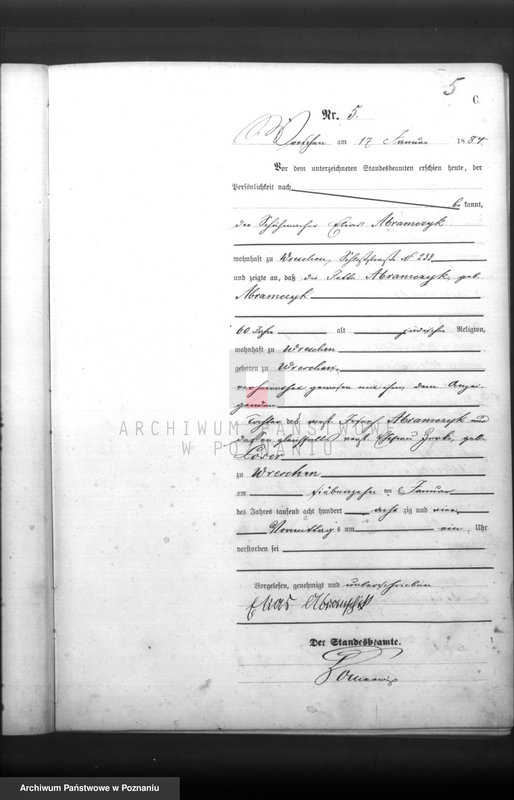 5
C.
Nr. 5.
Wreschen am 17 Januar 1884.
Vor dem unterzeichneten Standesbeamten erschien heute, der
Persönlichkeit nach
be kannt,
der Schuhmacher Elias Abramczyk
wohnhaft zu Wreschen, Schloßstraße N 232
und zeigte an, daß die Abramczyk, geb.
Abramczyk
60 Jahre alt jüdischer Religion,
wohnhaft zu Wreschen
geboren zu Wreschen,
verheirathet gewesen mit ihm, dem Anzei-
genden
Tochter des verst. Abramczyk und
dessen ebenfalls verst. Ehefrau geb.
zu Wreschen
am siebenzehn ten Januar
des Jahres tausend acht hundert acht zig und vier
Vormittags um ein Uhr
verstorben sei
Vorgelesen, genehmigt und unterschrieben
Elias Abramczyk
Der Standesbeamte.
ARCHIWUM PAŃSTWOWE
W POZNANIU
Archiwum Państwowe w Poznaniu